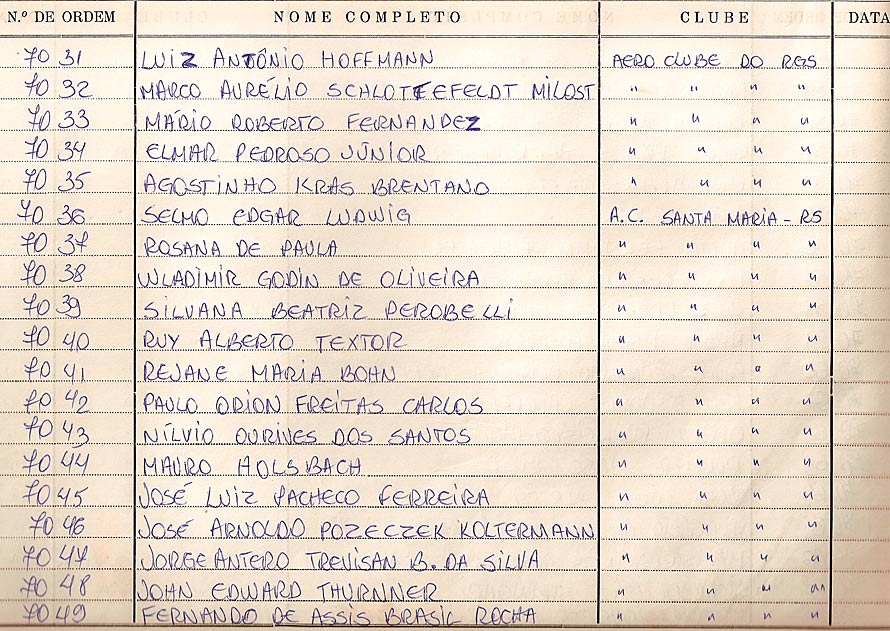 N.º DE ORDEM NOME COMPLETO CLUBE DATA
7031 LUIZ ANTÔNIO HOFFMANN AERO CLUBE DO RGS
7032 MARCO AURÉLIO SCHLOTTEFELDT MILOST " " " "
7033 MÁRIO ROBERTO FERNANDEZ " " " "
7034 ELMAR PEDROSO JÚNIOR " " " "
7035 AGOSTINHO KRAS BRENTANO " " " "
7036 SELMO EDGAR LUDWIG A.C. SANTA MARIA - RS
7037 ROSANA DE PAULA " " " "
7038 WLADIMIR GODIN DE OLIVEIRA " " " "
7039 SILVANA BEATRIZ PEROBELLI " " " "
7040 RUY ALBERTO TEXTOR " " " "
7041 REJANE MARIA BOHN " " " "
7042 PAULO ORION FREITAS CARLOS " " " "
7043 NÍLVIO OURIVES DOS SANTOS " " " "
7044 MAURO HOLSBACH " " " "
7045 JOSÉ LUIZ PACHECO FERREIRA " " " "
7046 JOSÉ ARNOLDO POZECZEK KOLTERMANN " " " "
7047 JORGE ANTERO TREVISAN B. DA SILVA " " " "
7048 JOHN EDWARD THURNNER " " " "
7049 FERNANDO DE ASSIS BRASIL ROCHA " " " "